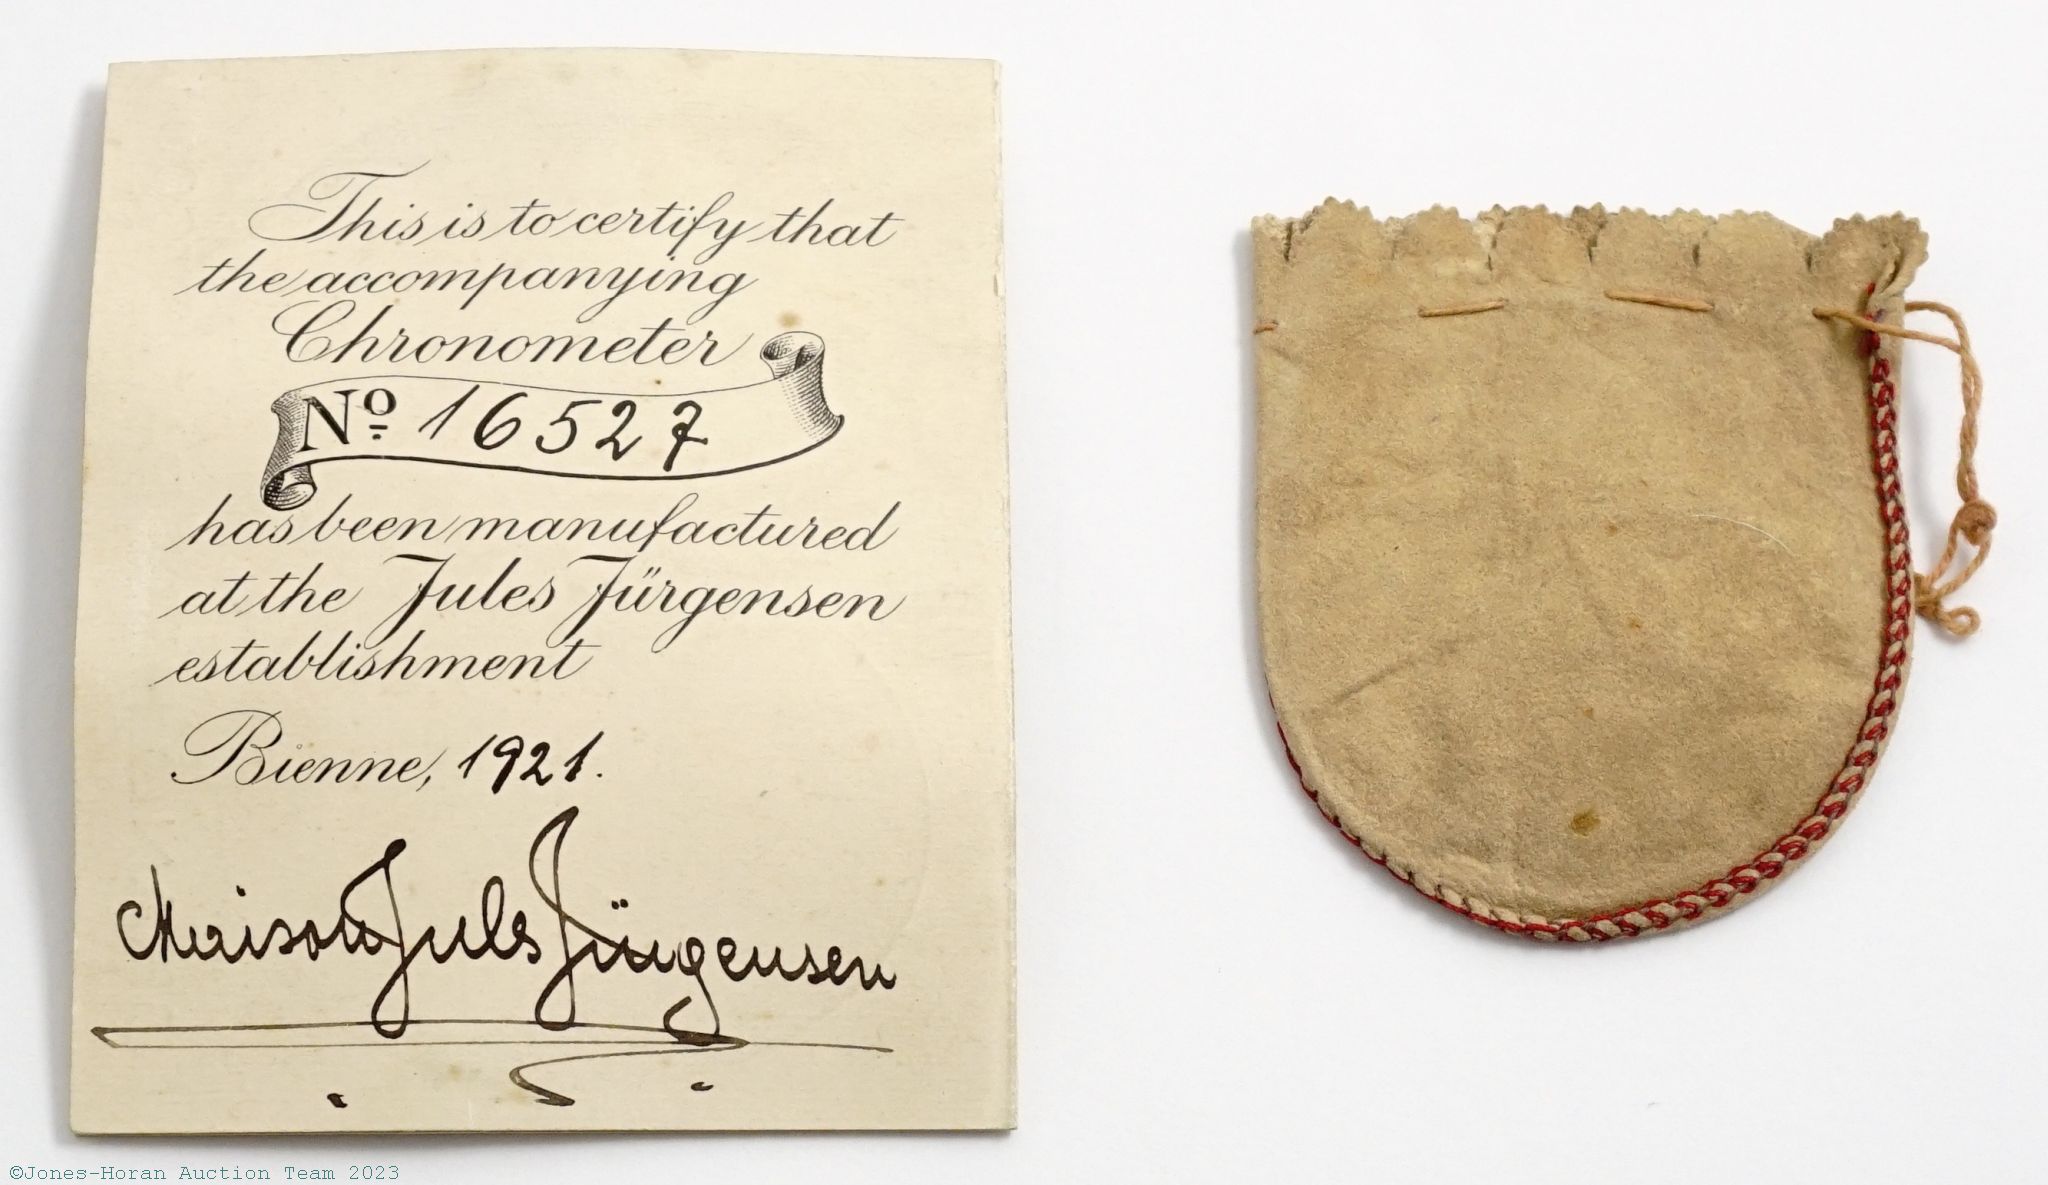 This is to certify that
the accompanying
Chronometer
Nº 16527
has been manufactured
at the Jules Jürgensen
establishment
Bienne, 1921.
Maison Jules Jürgensen
©Jones-Horan Auction Team 2023